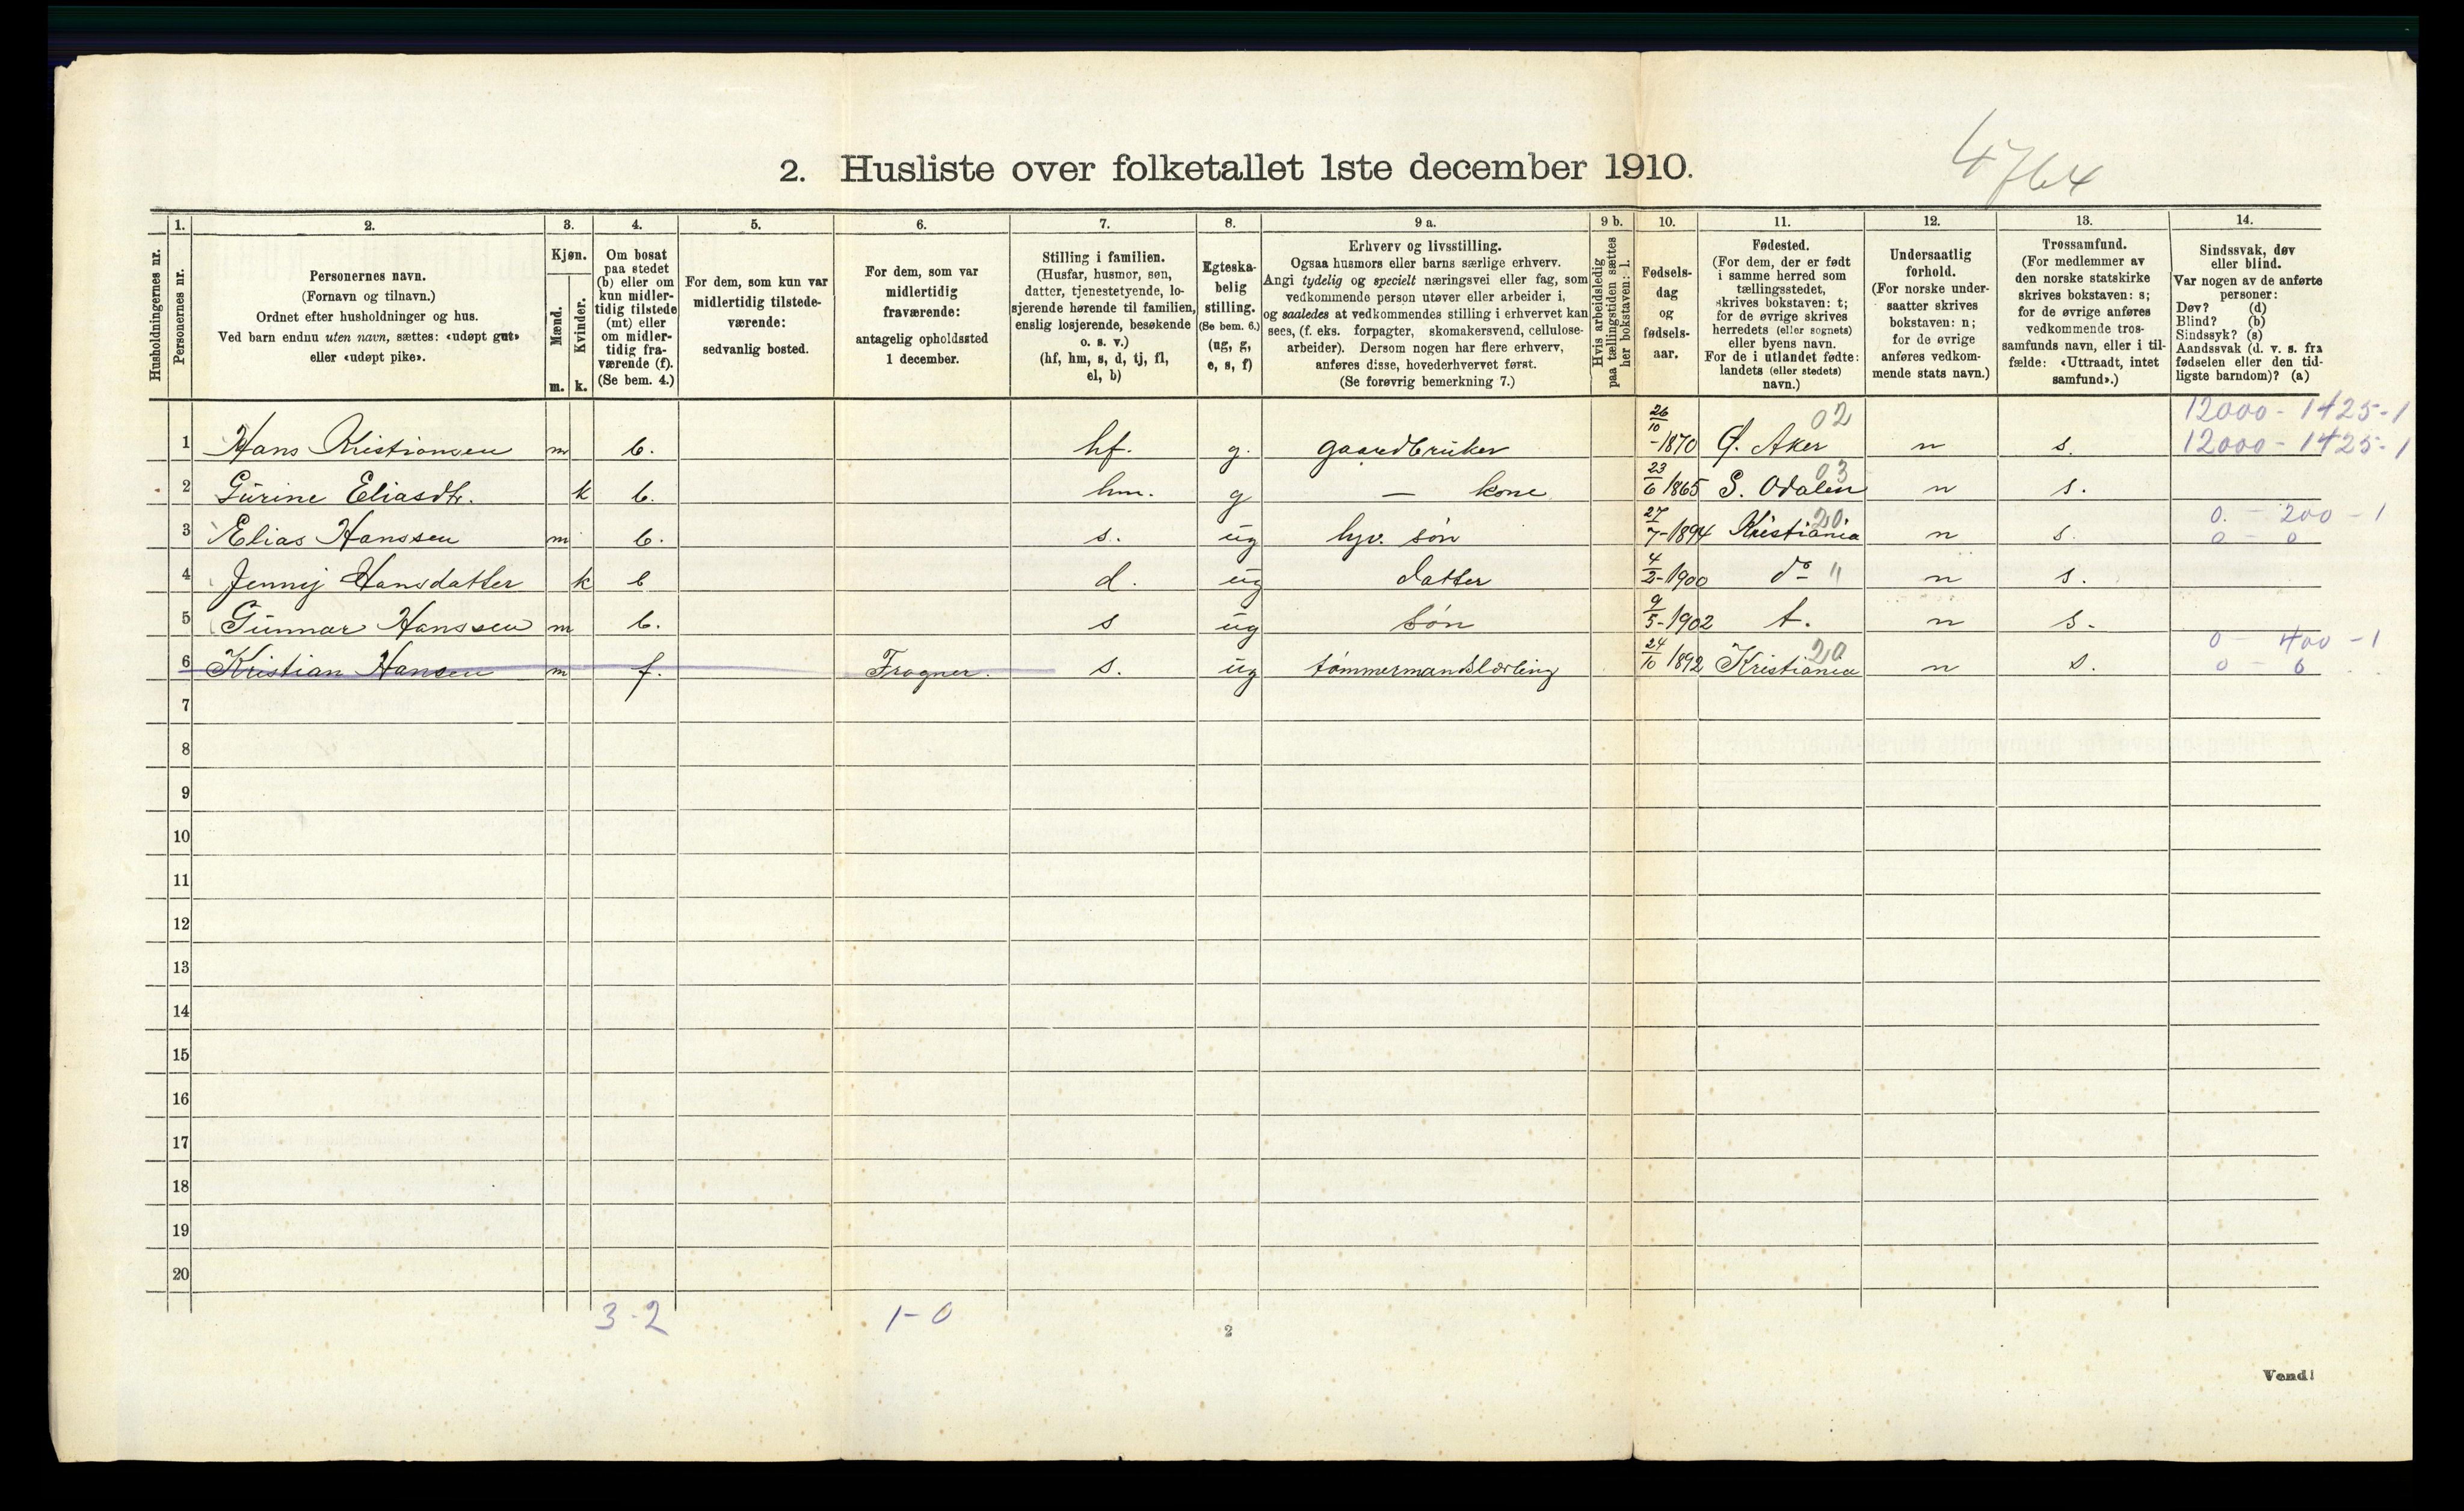 4764
2. Husliste over folketallet 1ste december 1910.
Husholdningernes nr.
1.
Personernes nr.
2.
Personernes navn.
(Fornavn og tilnavn.)
Ordnet efter husholdninger og hus.
Ved barn endnu uten navn, sættes: «udøpt gut»
eller «udøpt pike».
3.
Kjøn.
Mænd.
m.
Kvinder.
k.
4.
Om bosat
paa stedet
(b) eller om
kun midler-
tidig tilstede
(mt) eller
om midler-
tidig fra-
værende (f).
(Se bem. 4.)
5.
For dem, som kun var
midlertidig tilstede-
værende:
sedvanlig bosted.
6.
For dem, som var
midlertidig
fraværende:
antagelig opholdssted
1 december.
7.
Stilling i familien.
(Husfar, husmor, søn,
datter, tjenestetyende, lo-
sjerende hørende til familien,
enslig losjerende, besøkende
o. s. v.)
(hf, hm, s, d, tj, fl,
el, b)
8.
Egteska-
belig
stilling.
(Se bem. 6.)
(ug, g,
e, s, f)
9 a.
Erhverv og livsstilling.
Ogsaa husmors eller barns særlige erhverv.
Angi tydelig og specielt næringsvei eller fag, som
vedkommende person utøver eller arbeider i,
og saaledes at vedkommendes stilling i erhvervet kan
sees, (f. eks. forpagter, skomakersvend, cellulose-
arbeider). Dersom nogen har flere erhverv,
anføres disse, hovederhvervet først.
(Se forøvrig bemerkning 7.)
9 b.
Hvis arbeidsledig
paa tællingstiden sættes
her bokstaven: l.
10.
Fødsels-
dag
og
fødsels-
aar.
11.
Fødested.
(For dem, der er født
i samme herred som
tællingsstedet,
skrives bokstaven: t;
for de øvrige skrives
herredets (eller sognets)
eller byens navn.
For de i utlandet fødte:
landets (eller stedets)
navn.)
12.
Undersaatlig
forhold.
(For norske under-
saatter skrives
bokstaven: n;
for de øvrige
anføres vedkom-
mende stats navn.)
13.
Trossamfund.
(For medlemmer av
den norske statskirke
skrives bokstaven: s;
for de øvrige anføres
vedkommende tros-
samfunds navn, eller i til-
fælde: «Uttraadt, intet
samfund».)
14.
Sindssvak, døv
eller blind.
Var nogen av de anførte
personer:
Døv? (d)
Blind? (b)
Sindssyk? (s)
Aandssvak (d. v. s. fra
fødselen eller den tid-
ligste barndom)? (a)
02 12000 - 1425 - 1
1 Hans Kristiansen m b. hf. g. gaardbruker 26/10 - 1870 Ø. Aker n s. 12000 - 1425 - 1
03
2 Gurine Eliasdtr. k b. hm. g — kone 23/6 1865 S. Odalen n s.
20 0. - 200 - 1
3 Elias Hanssen m b. s. ug hjv. søn 27/7 - 1894 Kristiania n s. 0 - 0
4 Jenny Hansdatter k b d. ug datter 4/2 - 1900 do " n s.
5 Gunnar Hanssen m b. s ug søn 9/5 - 1902 t. n s.
20 0 - 400 - 1
6 Kristian Hansen m f. Frogner. s. ug tømmermandslærling 24/10 1892 Kristiania n s. 0 - 0
7
8
9
10
11
12
13
14
15
16
17
18
19
20
3 - 2 1 - 0
2
Vend!